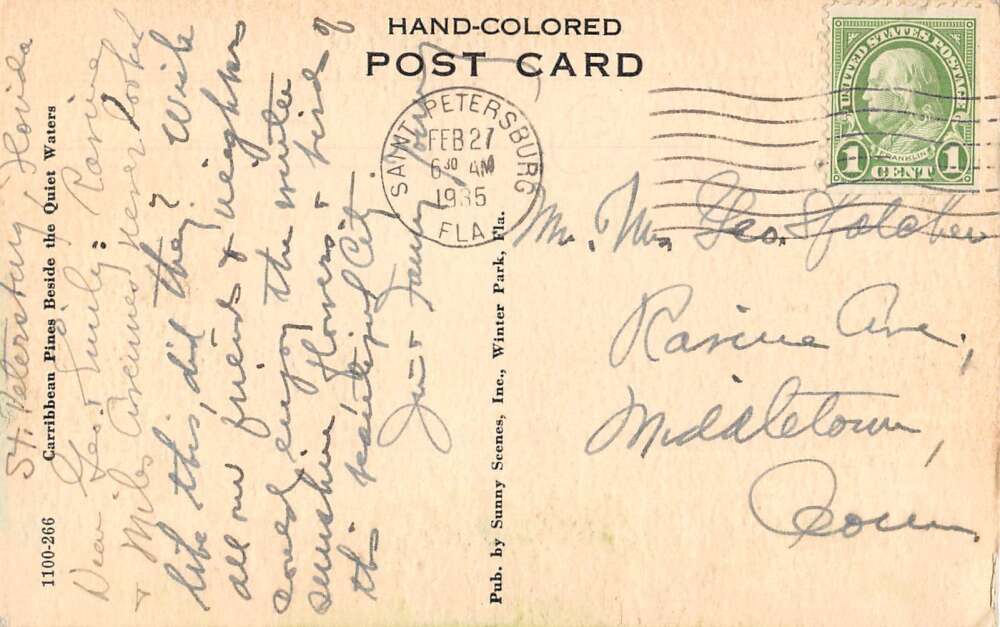 HAND-COLORED
POST CARD
UNITED STATES POSTAGE
FRANKLIN
1 CENT 1
SAINT PETERSBURG
FEB 27
6 30 AM
1935
FLA.
Mr. Mrs. Geo.
Ravine Ave,
Middletown,
Conn
1100-266 Carribbean Pines Beside the Quiet Waters
St. Petersburg, Florida
Dear Geo. & Family: Ravine
& Miles Avenues never looked
like this, did they? Wish
all our friends & neighbors
could enjoy the winter
sunshine, flowers & birds of
this beautiful City
& Fanny
Pub. by Sunny Scenes, Inc., Winter Park, Fla.